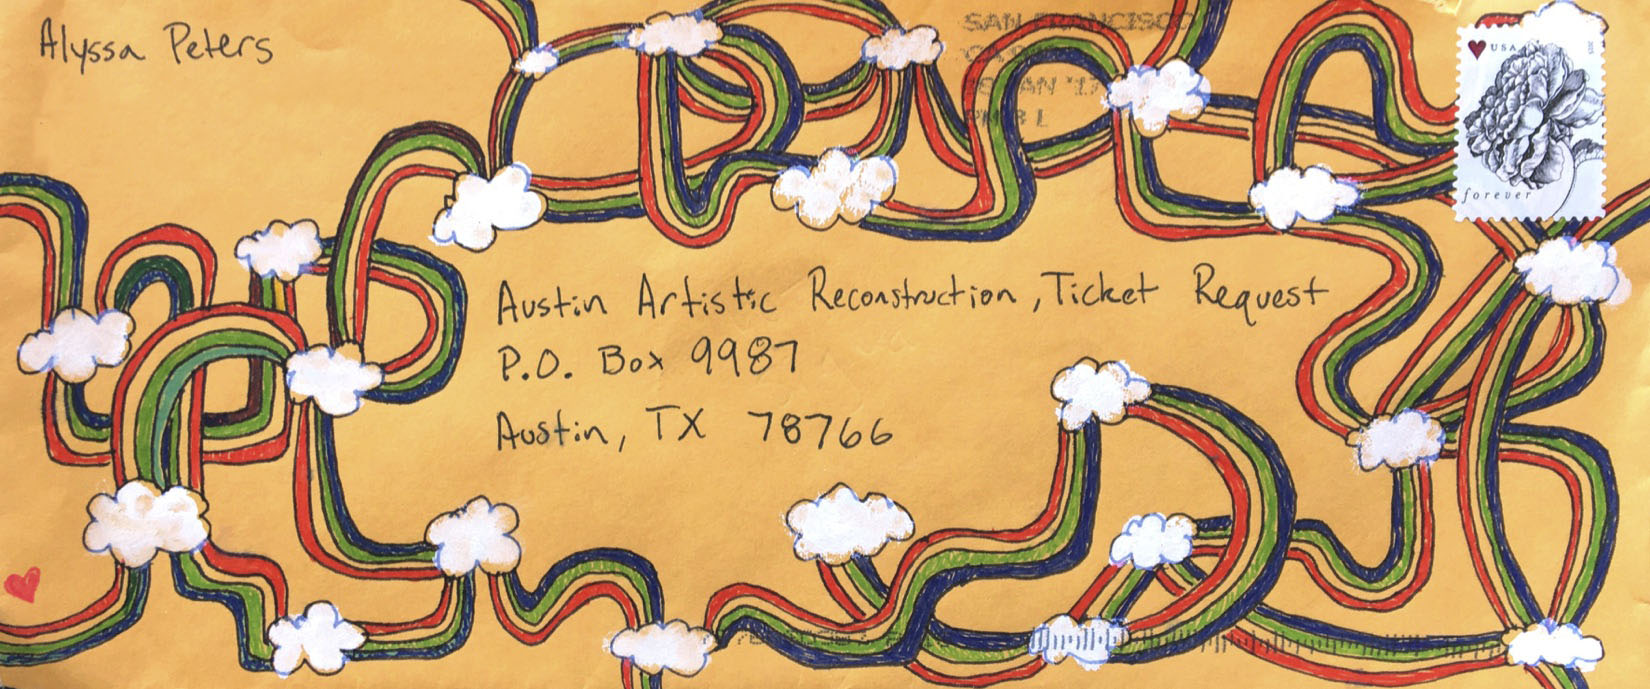 Alyssa Peters
SAN FRANCISCO
CA
JAN '17
PM 8 L
USA
2015
forever
Austin Artistic Reconstruction, Ticket Request
P.O. Box 9987
Austin, TX 78766